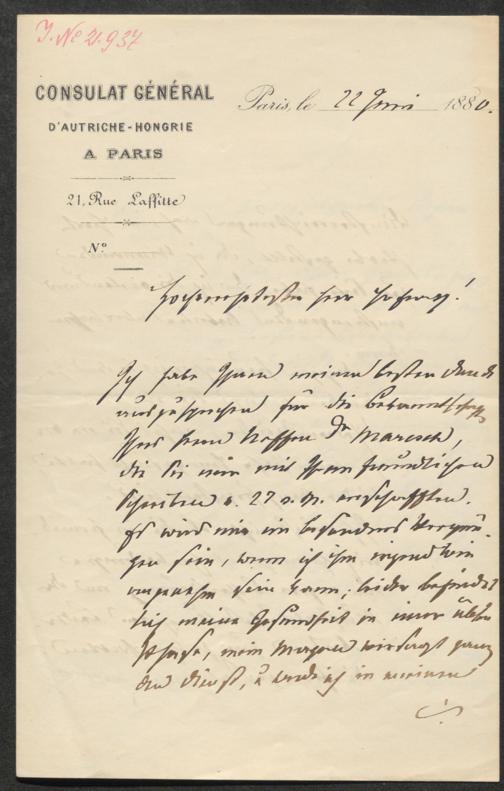 J. № 21.937
CONSULAT GÉNÉRAL
D'AUTRICHE-HONGRIE
A PARIS
21, Rue Laffitte
N.º
Paris, le 22 Juni 1880.
Hochverehrtester Herr Hofrath!
Ich habe Ihnen meinen besten Dank
auszusprechen für die Bekanntschaft
Ihres Herrn Neffen Dr Maresch,
die Sie mir mit Ihrem freundlichen
Schreiben v. 27 v. M. verschafften.
Es wird mir ein besonderes Vergnü-
gen sein, wenn ich ihm irgendwie
angenehm sein kann; leider befindet
sich meine Gesundheit in einer üblen
Phase, mein Magen versagt ganz
den Dienst, u. ich in meinem